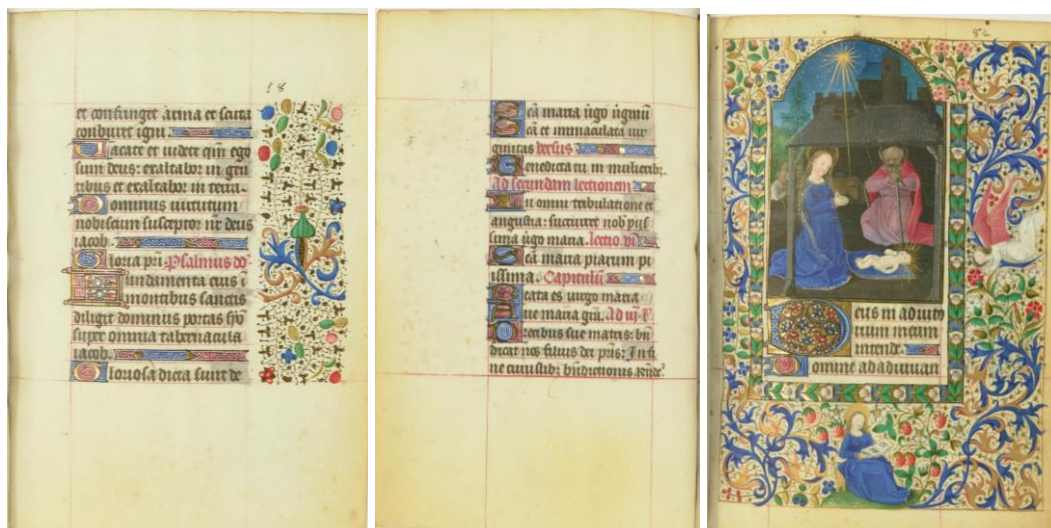 18
et confringet arma et scuta
conburet igni.
Vacate et videte qm̄ ego
sum deus: exaltabor in gen
tibus et exaltabor in terra.
Dominus virtutum
nobiscum susceptor nr̄ deus
iacob.
Gloria pr̄i Psalmus do
Fundamenta eius i
montibus sanctis
diligit dominus portas syō
super omnia tabernacula
iacob.
Gloriosa dicta sunt de
Scā maria v̄go v̄ginū
Scā et immaculata vir
ginitas versus
Benedicta tu in mulierib;
Ad secundam lectionem
In omni tribulatione et
angustia: succurrat nob̄ pijs
sima v̄go maria. lectio. vi
Scā maria piarum pi
issima. Capitulū
Beata es virgo maria
Aue maria grā. Ad iij. R
Precibus sue matris: bn̄
dicat nos filius dei pr̄is: In fi
ne cuiuslib; bn̄dictionis
52
Deus in adiuto
rium meum
intende.
Domine ad adiuuan